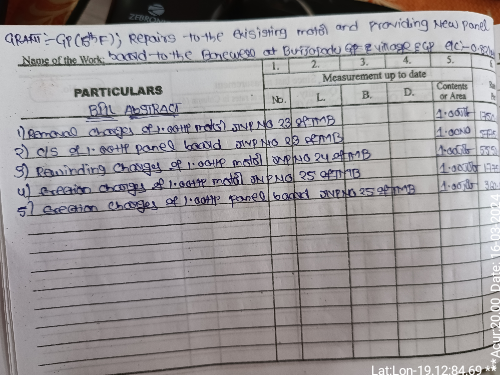 GRANT:- GP(15th F); Repairs to the exisisting motor and providing New panel
Name of the Work: board to the Borewell at GP & village EGP
1. 2. 3. 4. 5.
PARTICULARS
Measurement up to date
No. L. B. D. Contents or Area
Bill ABSTRACT
1) Removal charges of 1.00HP motor JNP NO 23 of TMB 1.00
2) C/S of 1.00HP panel board JNP NO 23 of TMB 1.00
3) Rewinding charges of 1.00HP motor JNP NO 24 of TMB 1.00
4) Erection charges of 1.00HP motor JNP NO 25 of TMB 1.00
5) Erection charges of 1.00HP panel board JNP NO 25 of TMB 1.00
Lat:Lon-19.12:84.69 *** Acur 20.00 Date: